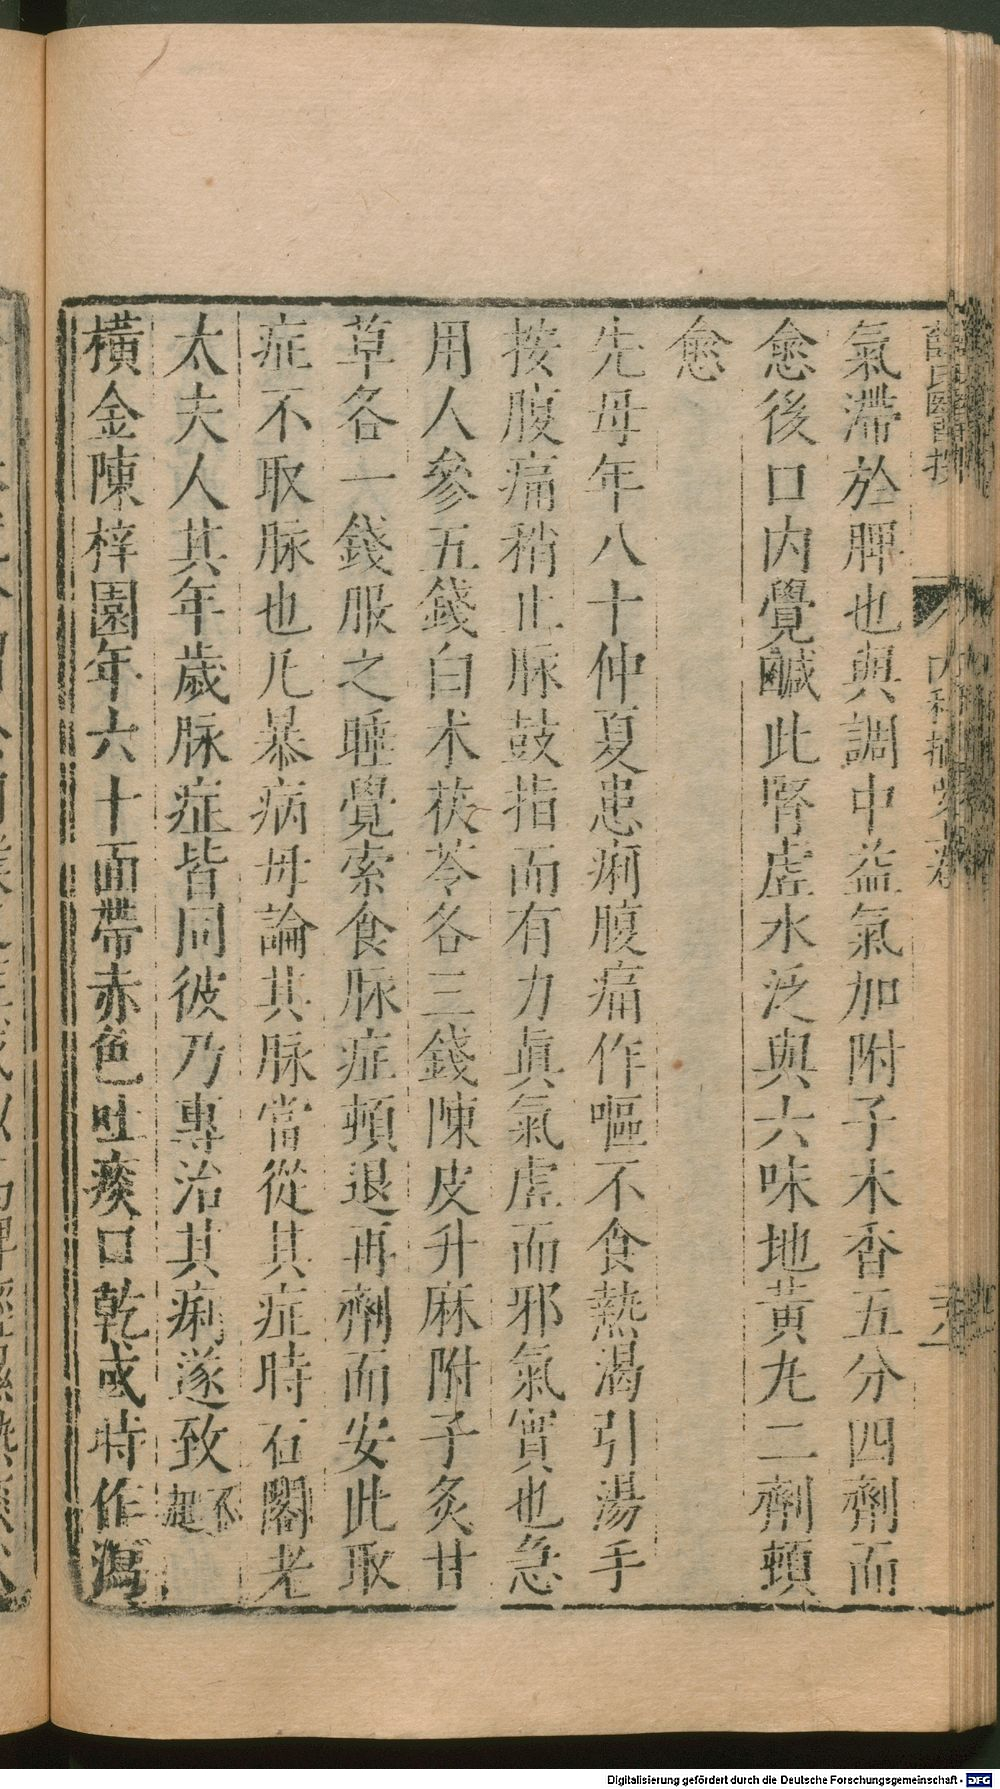 氣滯於脾也與調中益氣加附子木香五分四劑而
愈後口內覺鹹此腎虛水泛與六味地黃丸二劑頓
愈
先母年八十仲夏患痢腹痛作嘔不食熱渴引湯手
按腹痛稍止脉鼓指而有力眞氣虛而邪氣實也急
用人參五錢白朮茯苓各三錢陳皮升麻附子炙甘
草各一錢服之睡覺索食脉症頓退再劑而安此取
症不取脉也凡暴病毋論其脉當從其症時石閣老
太夫人其年歲脉症皆同彼乃專治其痢遂致不起
橫金陳梓園年六十面帶赤色吐痰口乾或時作瀉
內科摘
Digitalisierung gefördert durch die Deutsche Forschungsgemeinschaft - DFG